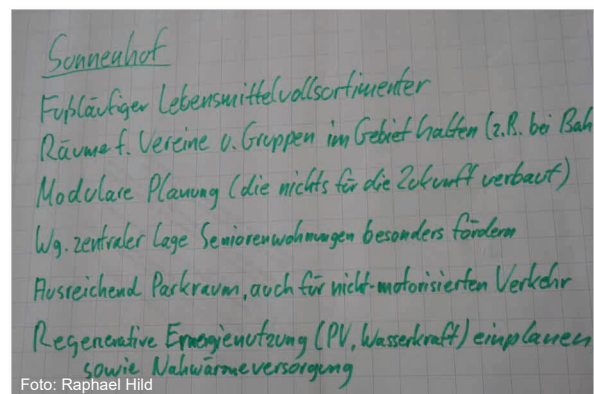 Sonnenhof
Fußläufiger Lebensmittelvollsortimenter
Räume f. Vereine u. Gruppen im Gebiet halten (z.B. bei Bah
Modulare Planung (die nichts für die Zukunft verbaut)
Wg. zentraler Lage Seniorenwohnungen besonders fördern
Ausreichend Parkraum, auch für nicht-motorisierten Verkehr
Regenerative Energienutzung (PV, Wasserkraft) einplanen
sowie Nahwärmeversorgung
Foto: Raphael Hild